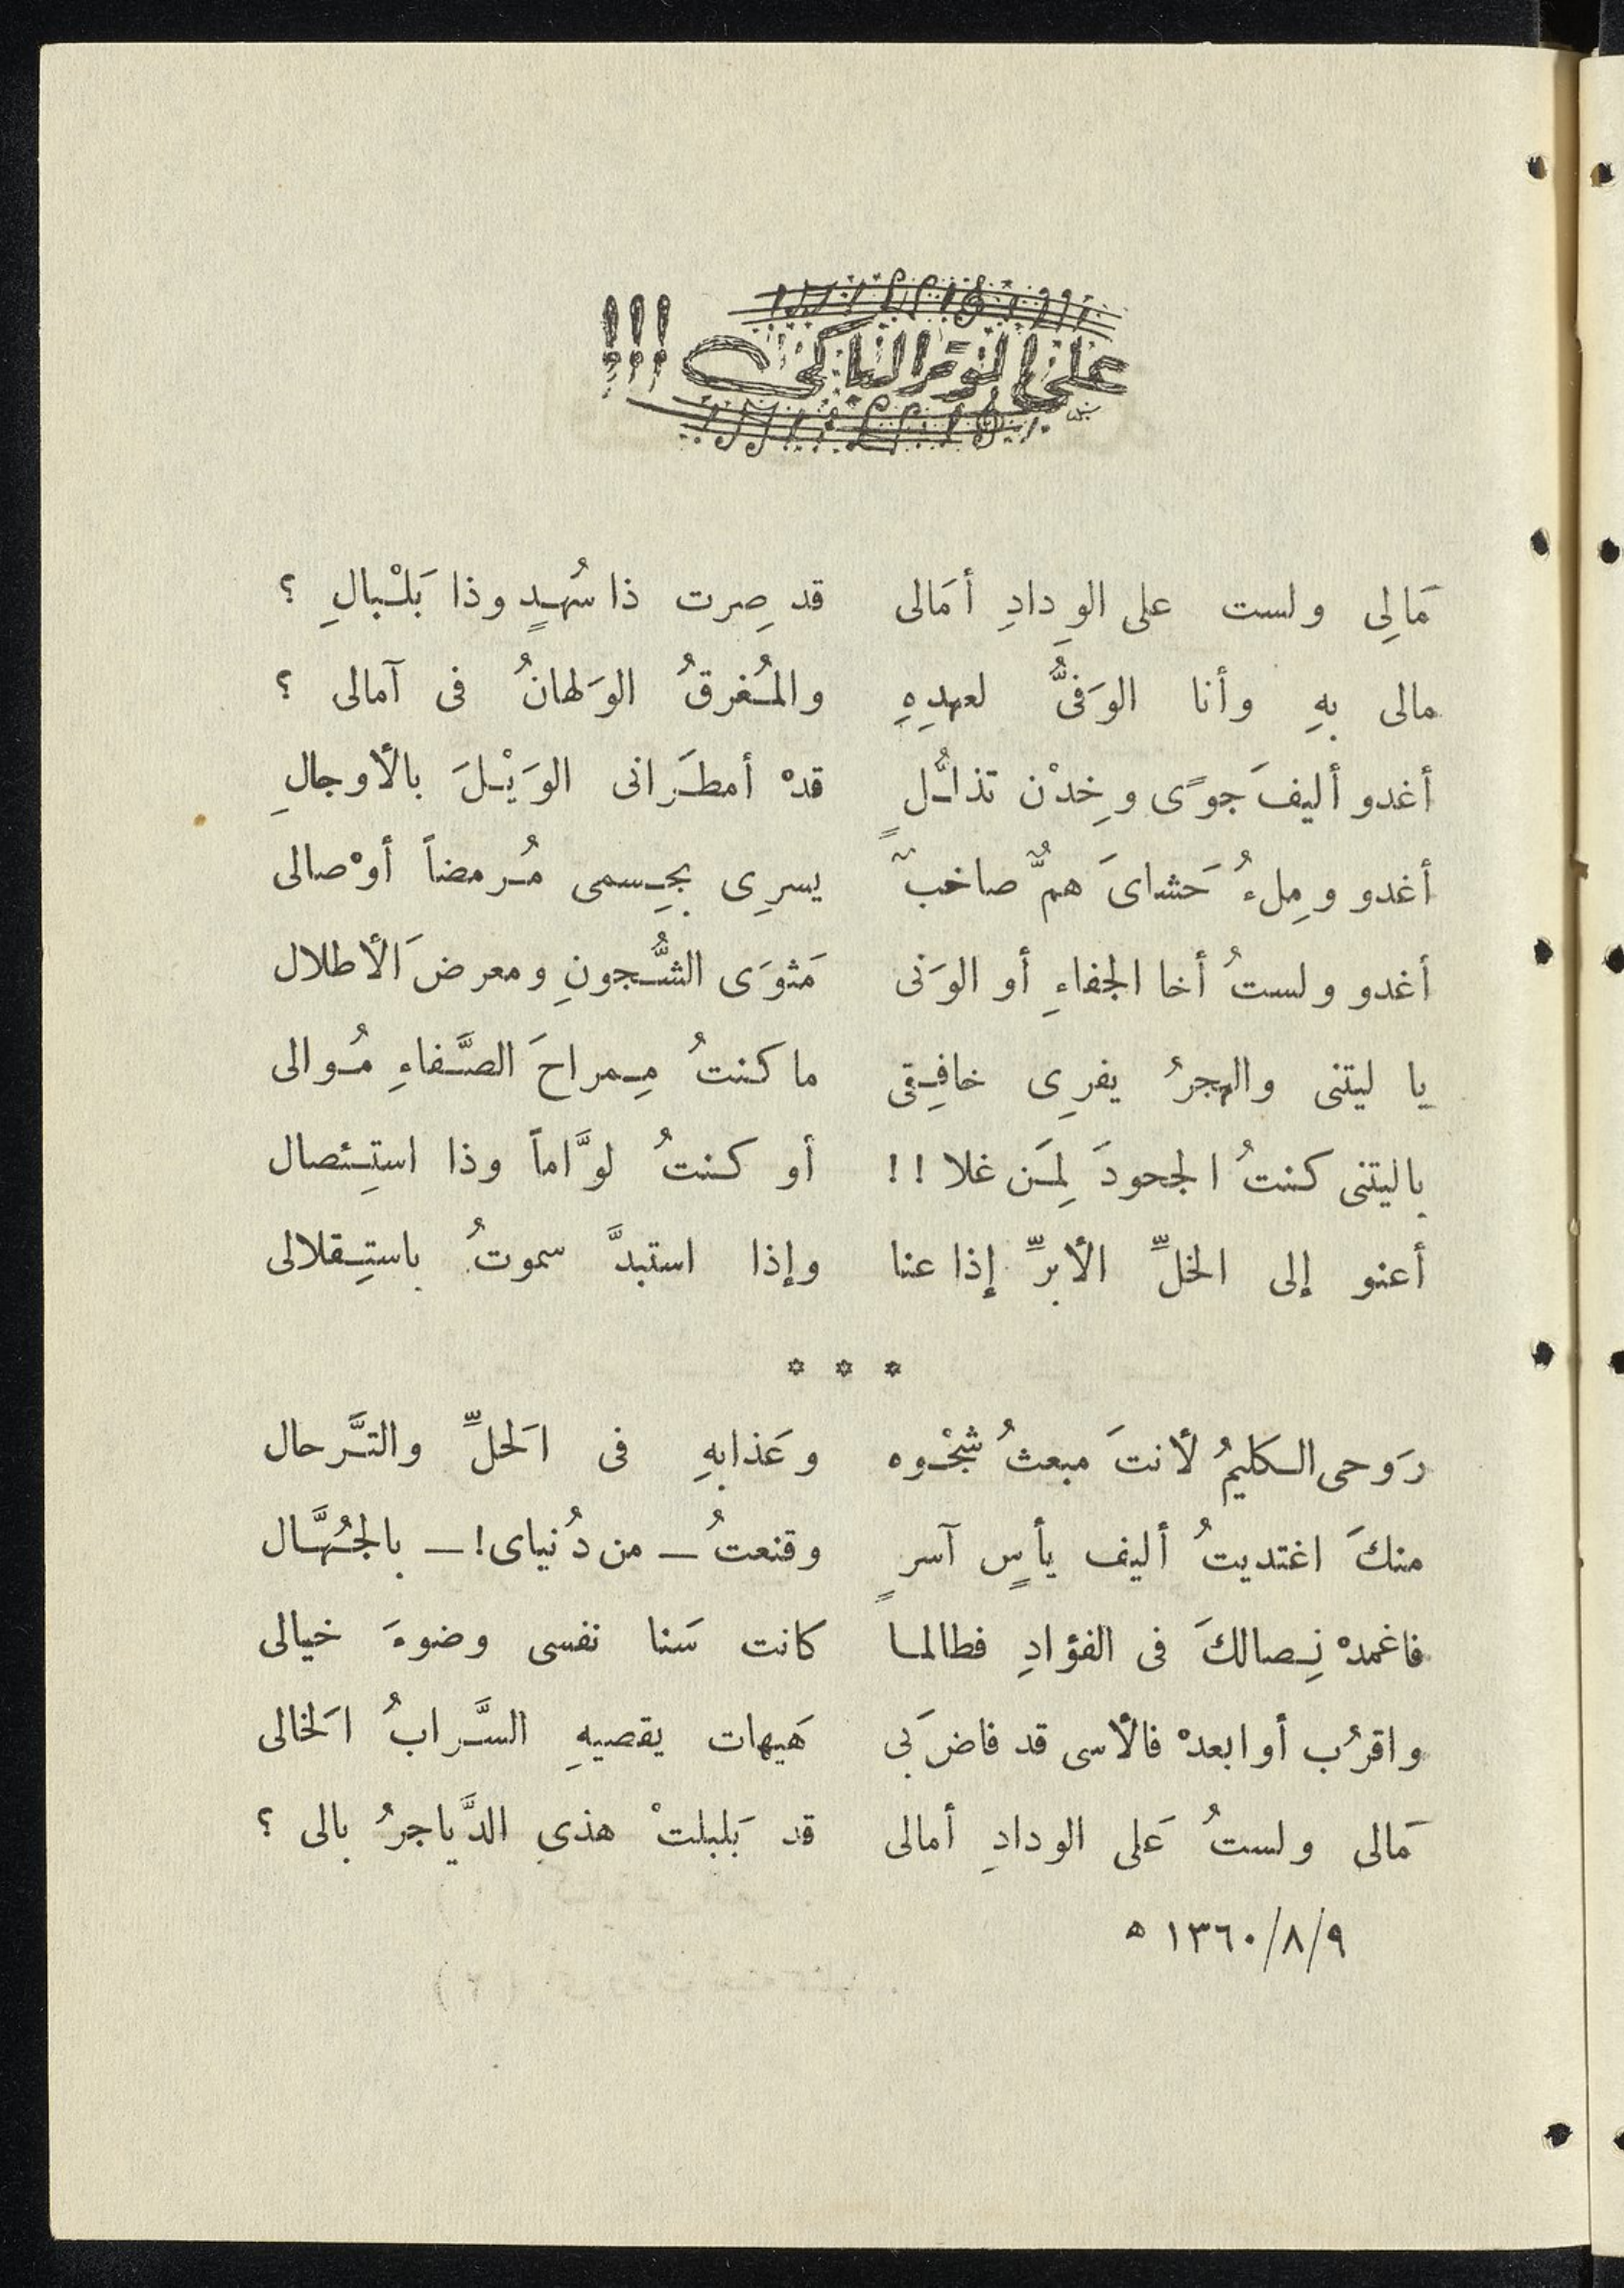 على الوتر الباكى !!!
مَالِى ولست على الوِدادِ أمَالى قد صِرت ذا سُهدٍ وذا بَلْبالِ ؟
مالى بهِ وأنا الوَفىُّ لعهدِهِ والمُغرقُ الوَلهانُ فى آمالى ؟
أغدو أليفَ جوًى وخِدْن تذلُّلٍ قدْ أمطَرانى الوَيْلَ بالأوجالِ
أغدو ومِلءُ حَشاىَ همٌّ صاخبٌ يسرِى بجِسمى مُرمضاً أوْصالى
أغدو ولستُ أخا الجفاءِ أو الوَنى مَثوَى الشُّجونِ ومعرضَ الأطلال
يا ليتنى والهجرُ يفرِى خافِقى ما كنتُ مِمراحَ الصَّفاءِ مُوالى
ياليتنى كنتُ الجحودَ لِمَن غلا !! أو كنتُ لوَّاماً وذا استِئصال
أعنو إلى الخلِّ الأبرِّ إذا عنا وإذا استبدَّ سموتُ باستِقلالى
* * *
رَوحى الكليمُ لأنتَ مبعثُ شجْوه وعَذابهِ فى الَحلِّ والتَّرحال
منكَ اغتديتُ أليف يأسٍ آسرٍ وقنعتُ – من دُنياى! – بالجُهَّال
فاغمدْ نِصالكَ فى الفؤادِ فطالما كانت سَنا نفسى وضوءَ خيالى
واقرُب أوابعدْ فالأسى قد فاض بَى هَيهات يقصيهِ السَّرابُ الَخالى
مَالى ولستُ عَلى الودادِ أمالى قد بَلبلتْ هذى الدَّياجرُ بالى ؟
١٣٦٠/٨/٩ ه